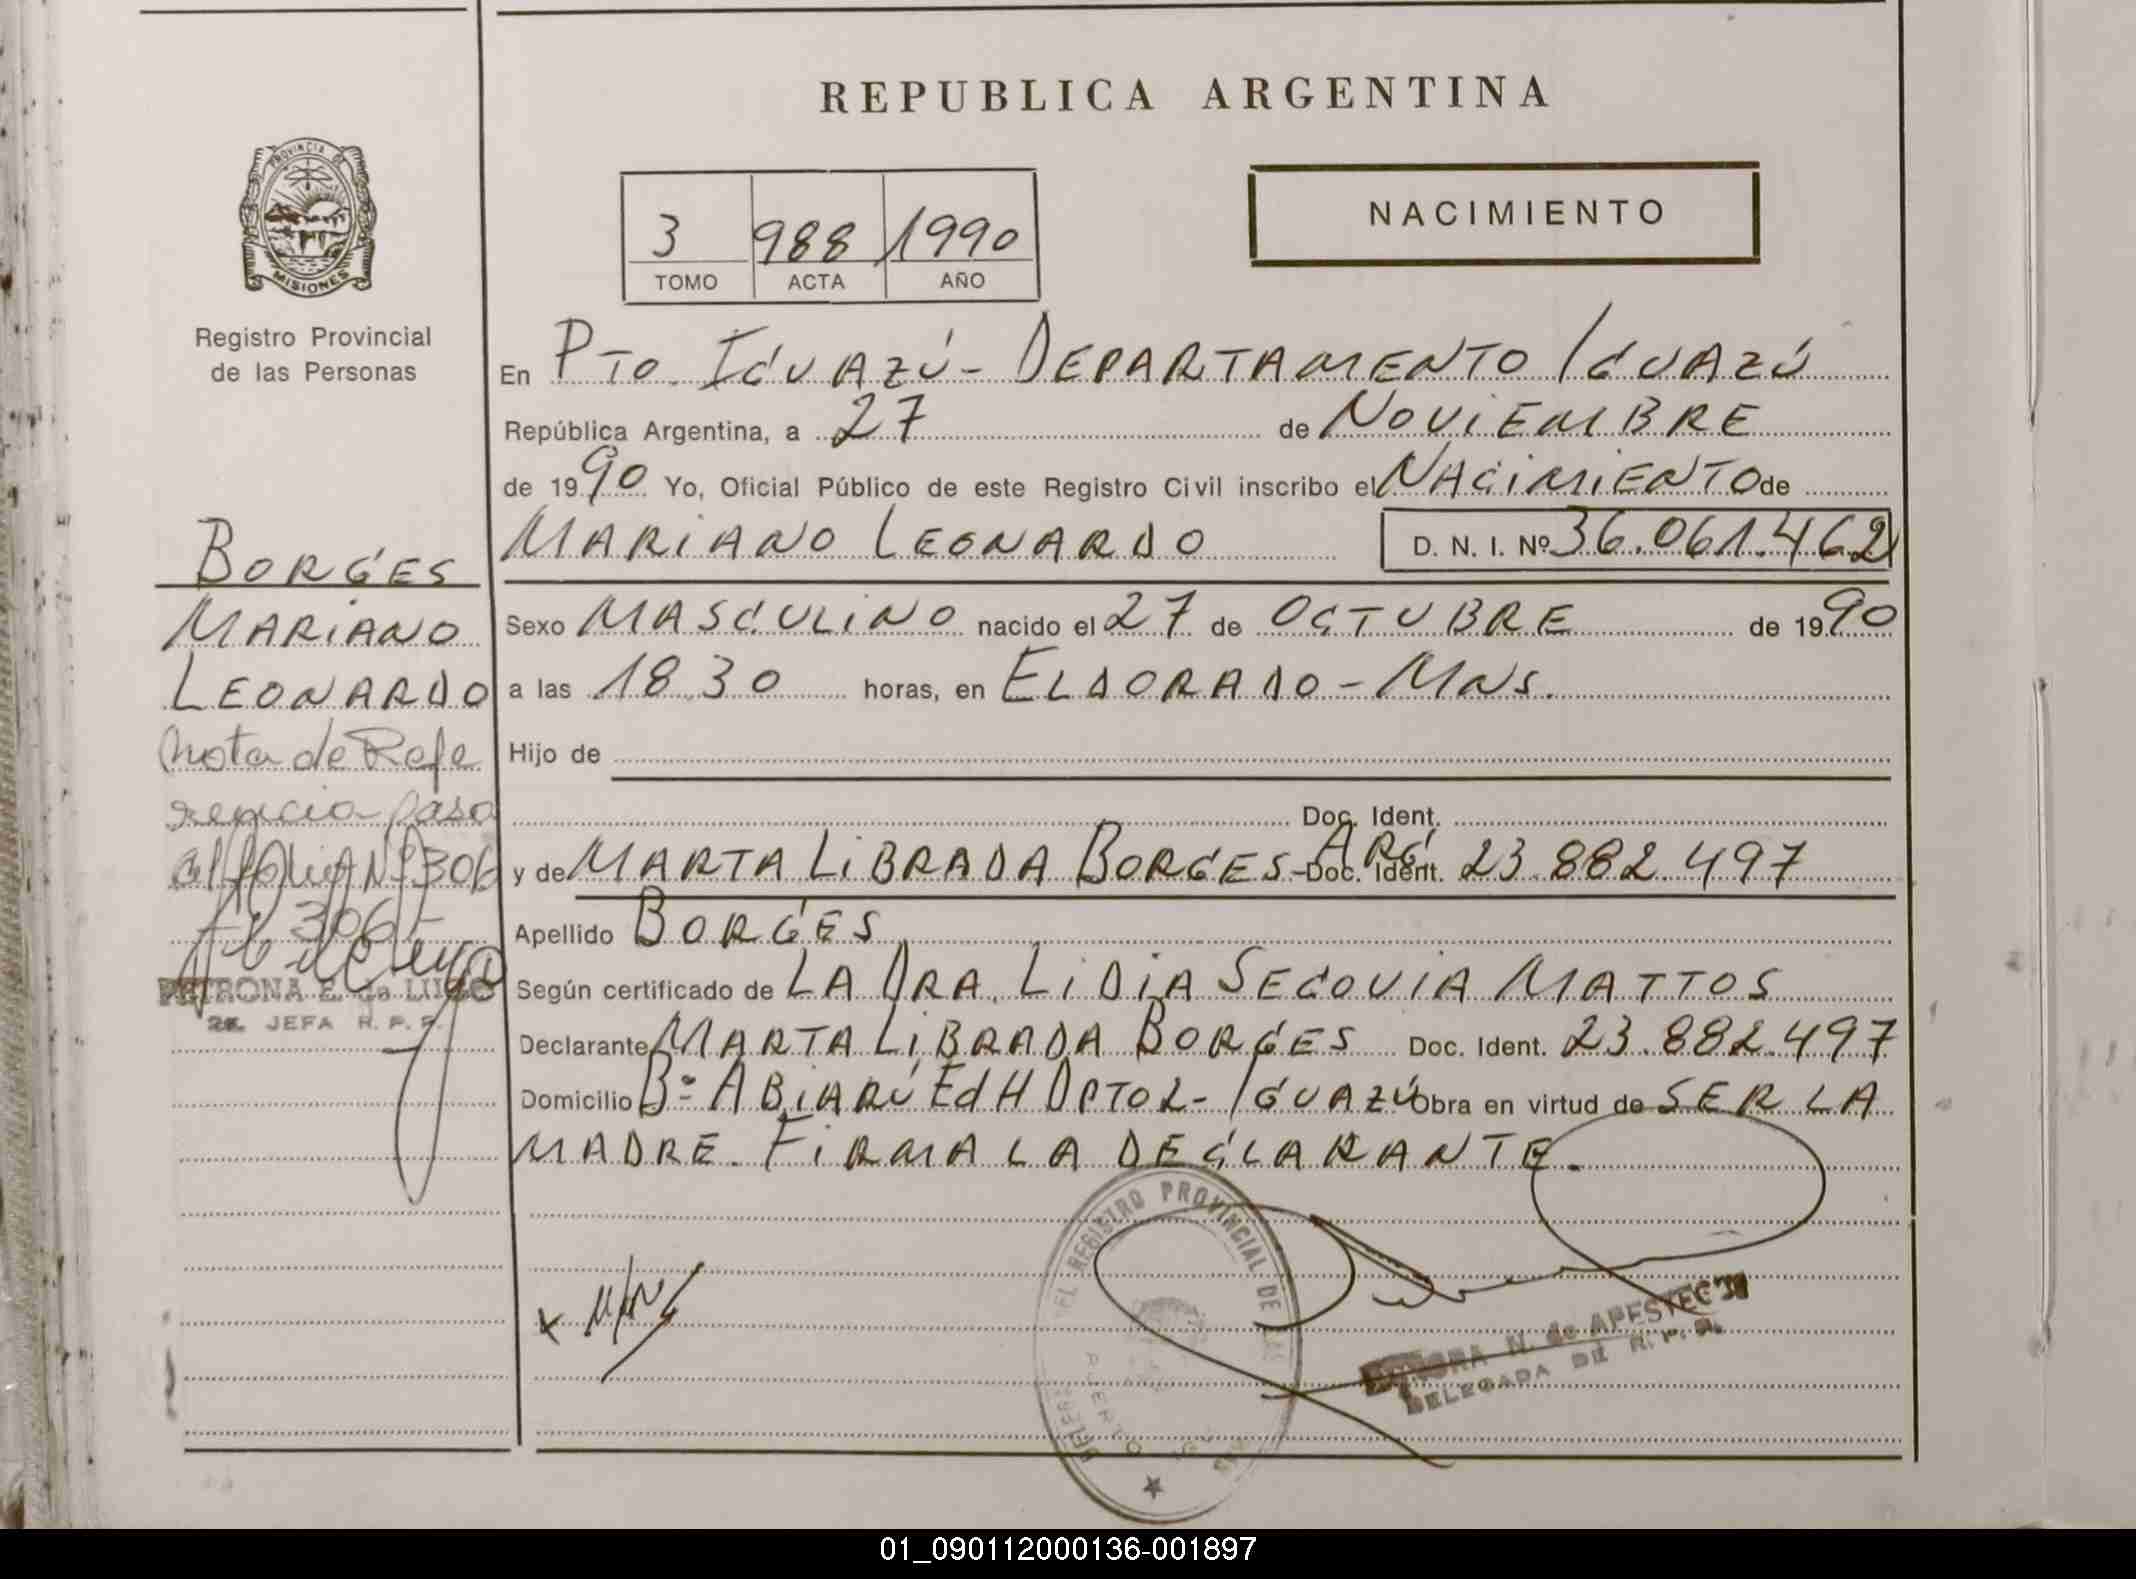 REPUBLICA ARGENTINA
PROVINCIA DE
MISIONES
Registro Provincial
de las Personas
3 988 1990
TOMO ACTA AÑO
NACIMIENTO
En Pto. IGUAZÚ - DEPARTAMENTO IGUAZÚ
República Argentina, a 27 de NOVIEMBRE
de 1990 Yo, Oficial Público de este Registro Civil inscribo el NACIMIENTO de
MARIANO LEONARDO D. N. I. Nº 36.061.462
Sexo MASCULINO nacido el 27 de OCTUBRE de 1990
a las 18.30 horas, en ELDORADO - MNS.
Hijo de
Doc. Ident.
y de MARTA LIBRADA BORGES - Doc. Ident. ARG 23.882.497
Apellido BORGES
Según certificado de LA DRA. LIDIA SEGOVIA MATTOS
Declarante MARTA LIBRADA BORGES Doc. Ident. 23.882.497
Domicilio Bº ABIARÚ Ed H DPTO 2 - IGUAZÚ Obra en virtud de SER LA
MADRE. FIRMA LA DECLARANTE.
BORGES
MARIANO
LEONARDO
Nota de Refe
rencia pasa
al folio Nº 306
306
PETRONA E. de LUGO
2a. JEFA R. P. P.
DEL REGISTRO PROVINCIAL DE LAS
PUERTO
N. de APESTEC
DELEGADA DE R. P. P.
01_090112000136-001897